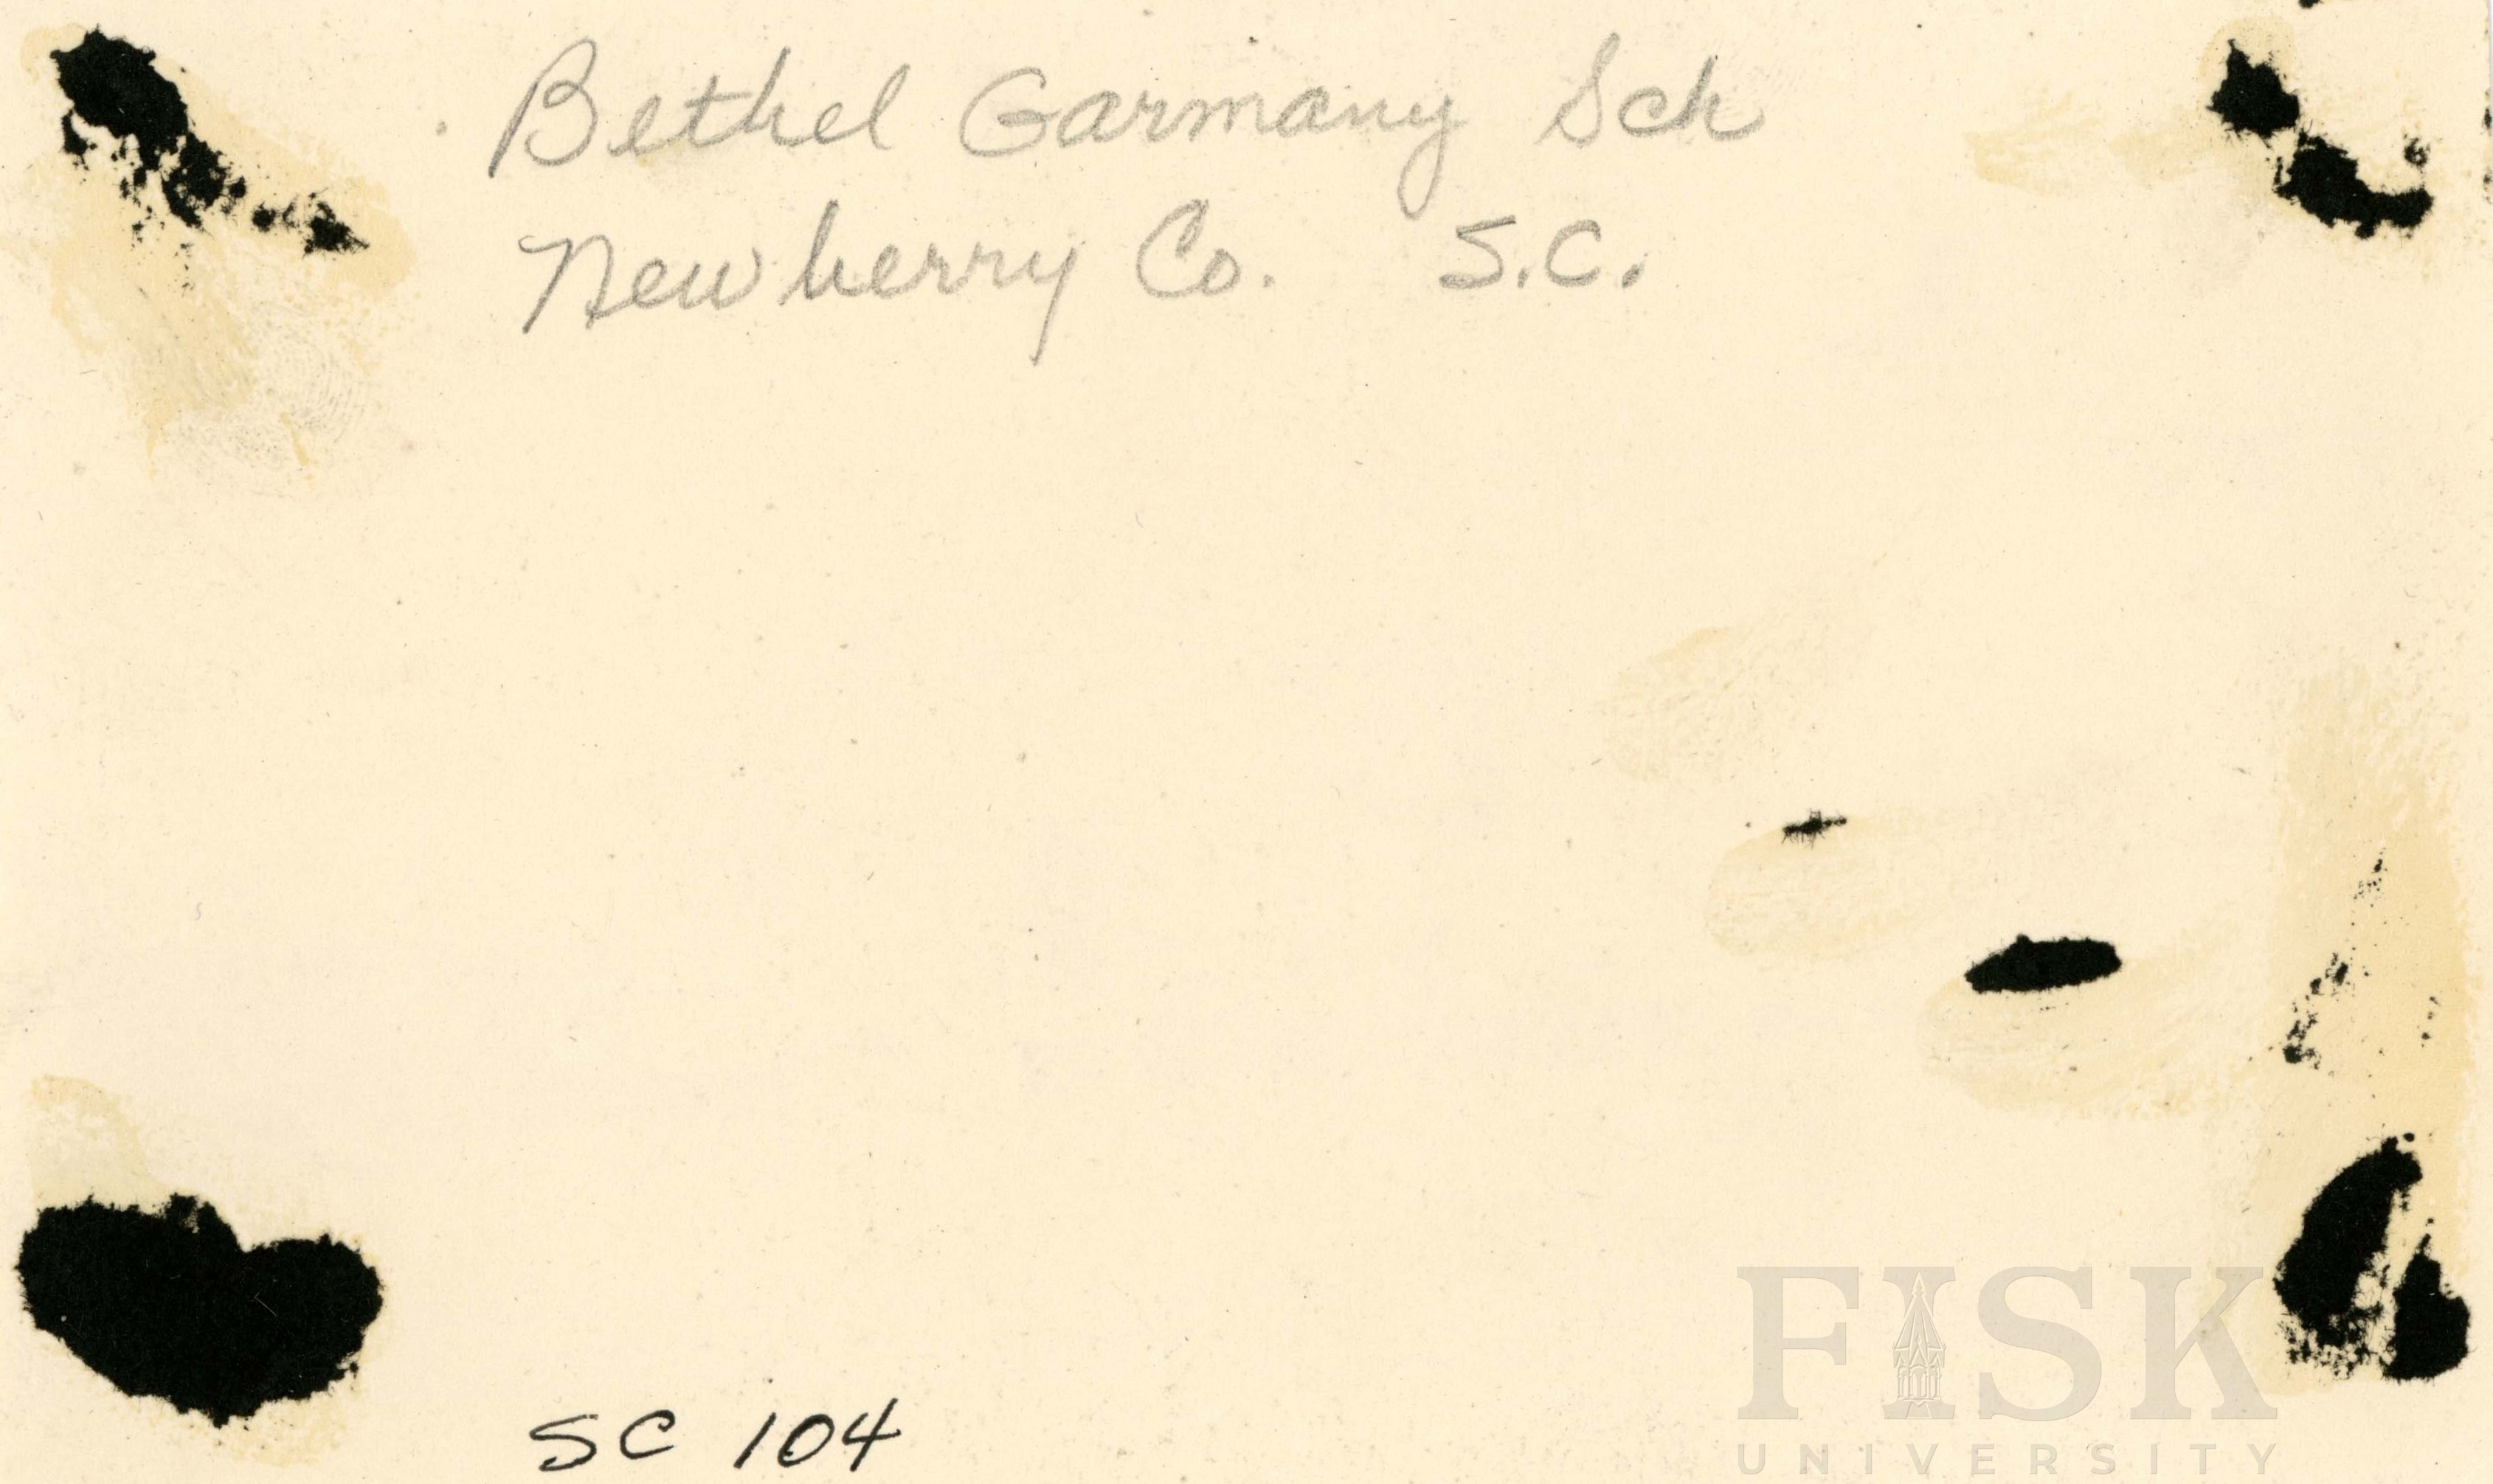 Bethel Garmany Sch
Newberry Co. S.C.
SC 104
FISK
UNIVERSITY